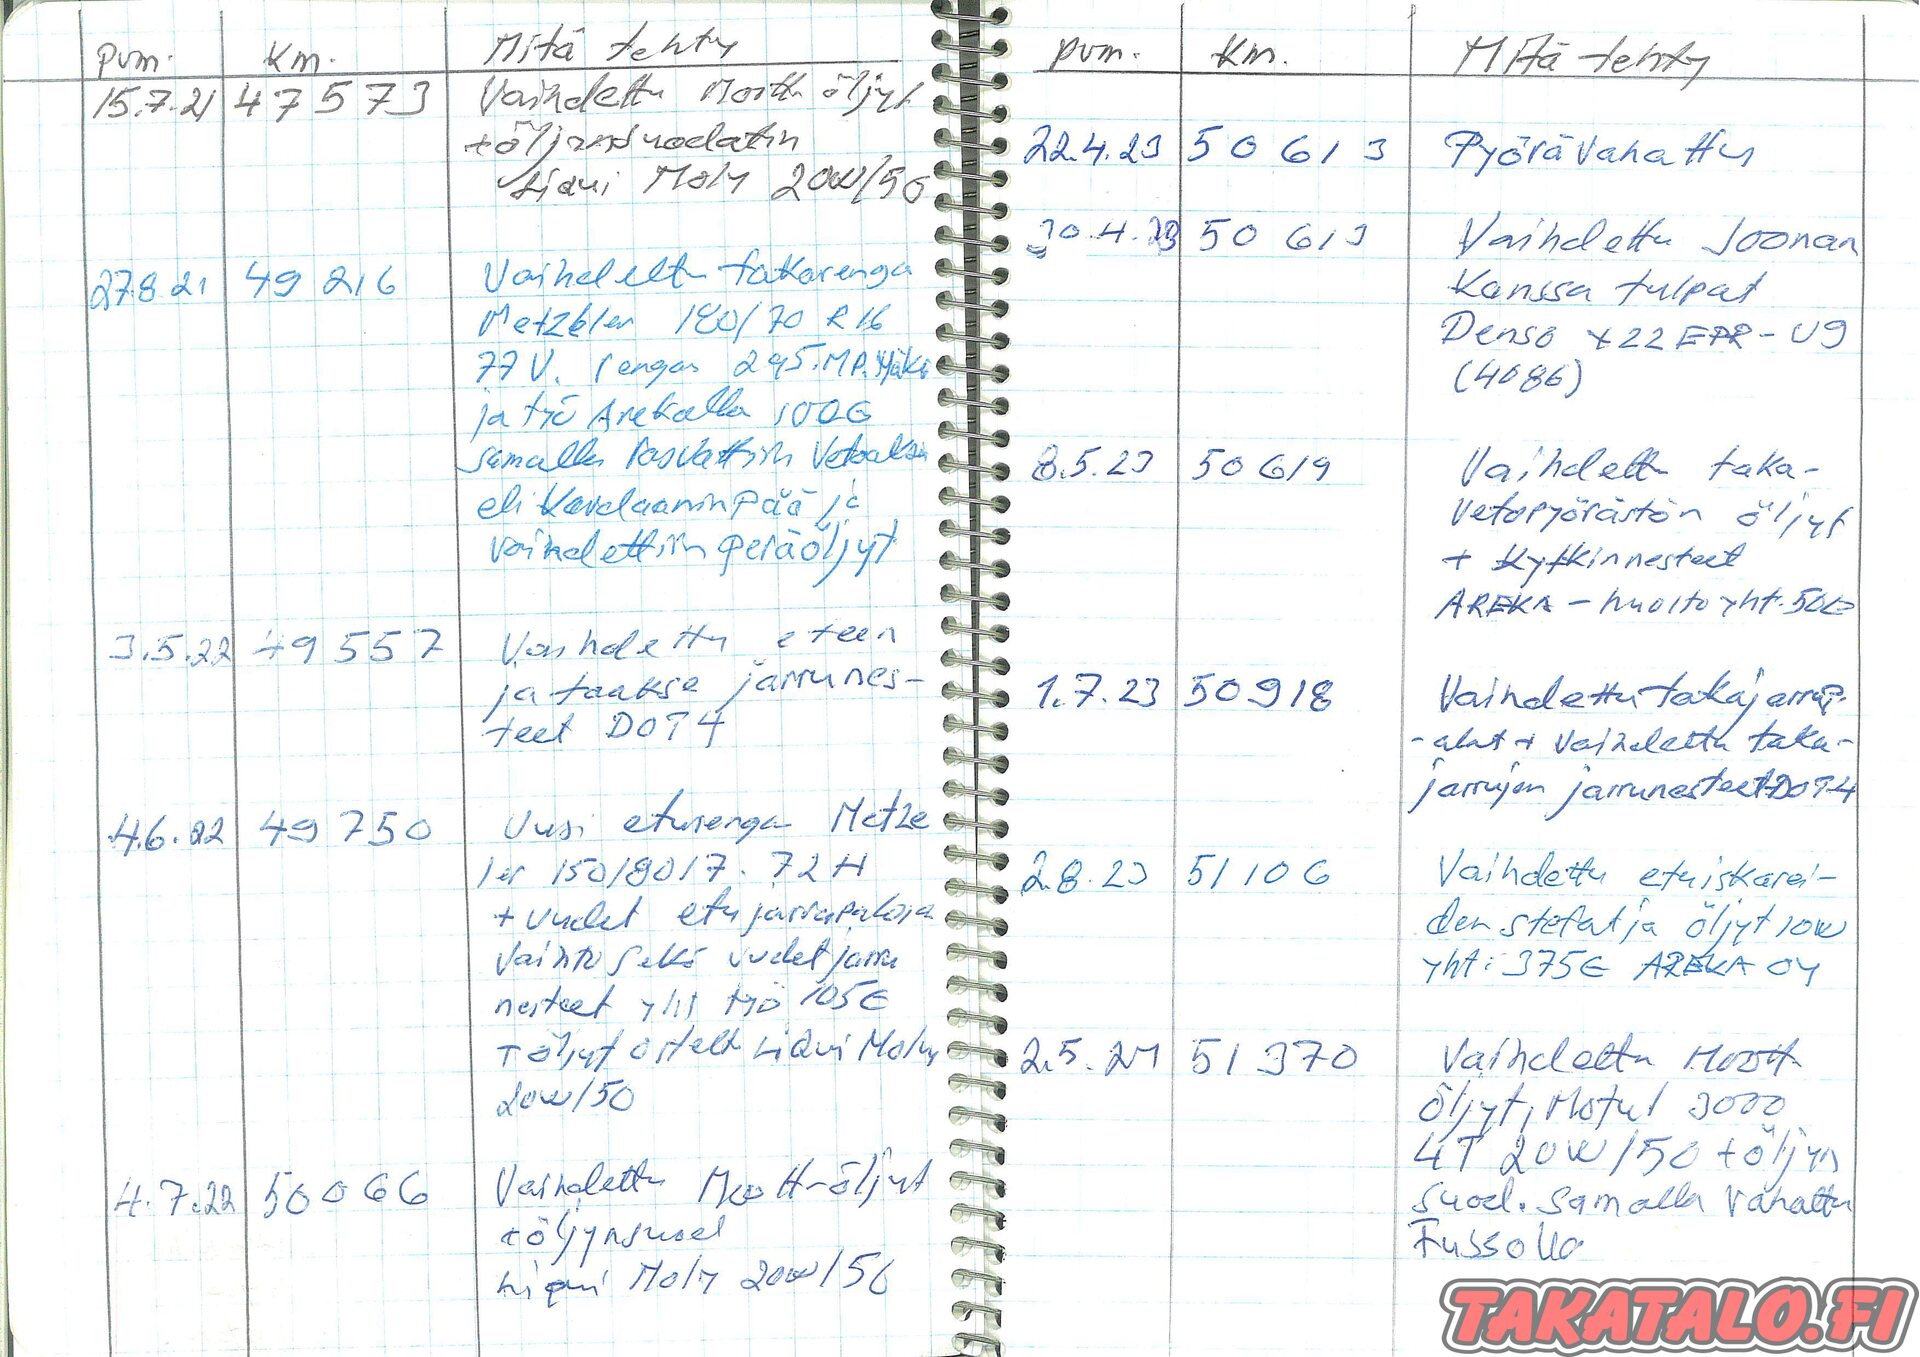 pvm. Km. Mitä tehty
15.7.21 47573 Vaihdettu Moott öljyt
+öljynsuodatin
Liqui Moly 20W/50
27.8.21 49216 Vaihdettu takarenga
Metzeler 180/70 R16
77V. rengas 295. MP.
ja työ Arekalla 100€
samalla rasvattiin Vetoakse
eli Kardaaninpää ja
vaihdettiin peräöljyt
3.5.22 49557 Vaihdettu eteen
ja taakse jarrunes-
teet DOT4
4.6.22 49750 Uusi eturenga Metze
ler 150/80/7. 72H
+ uudet etujarrupaloja
vaihto sekä uudet jarru
nesteet yht työ 105€
+öljyt ostettu Liqui Moly
20W/50
4.7.22 50066 Vaihdettu Moott-öljyt
+öljynsuod
Liqui Moly 20W/50
pvm. Km. Mitä tehty
22.4.23 50613 Pyörä vahattu
30.4.23 50613 Vaihdettu Joonan
Kanssa tulpat
Denso x22EPR-U9
(4086)
8.5.23 50619 Vaihdettu taka-
vetopyörästön öljyt
+ Kytkinnesteet
AREKA-huolto yht. 50€
1.7.23 50918 Vaihdettu takajarrup-
-alat + vaihdettu taka-
jarrujen jarrunesteet DOT4
2.8.23 51106 Vaihdettu etuiskarei-
den stefat ja öljyt 10W
yht: 375€ AREKA OY
2.5.24 51370 Vaihdettu Moott
öljyt, Motul 3000
4T 20W/50 +öljyn
suod. samalla vahattu
Fussolla
TAKATALO.FI